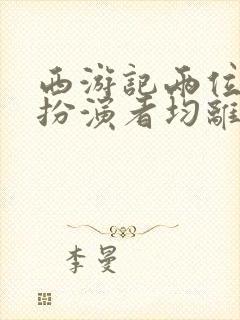 西游記兩位
扮演者均離
李曼